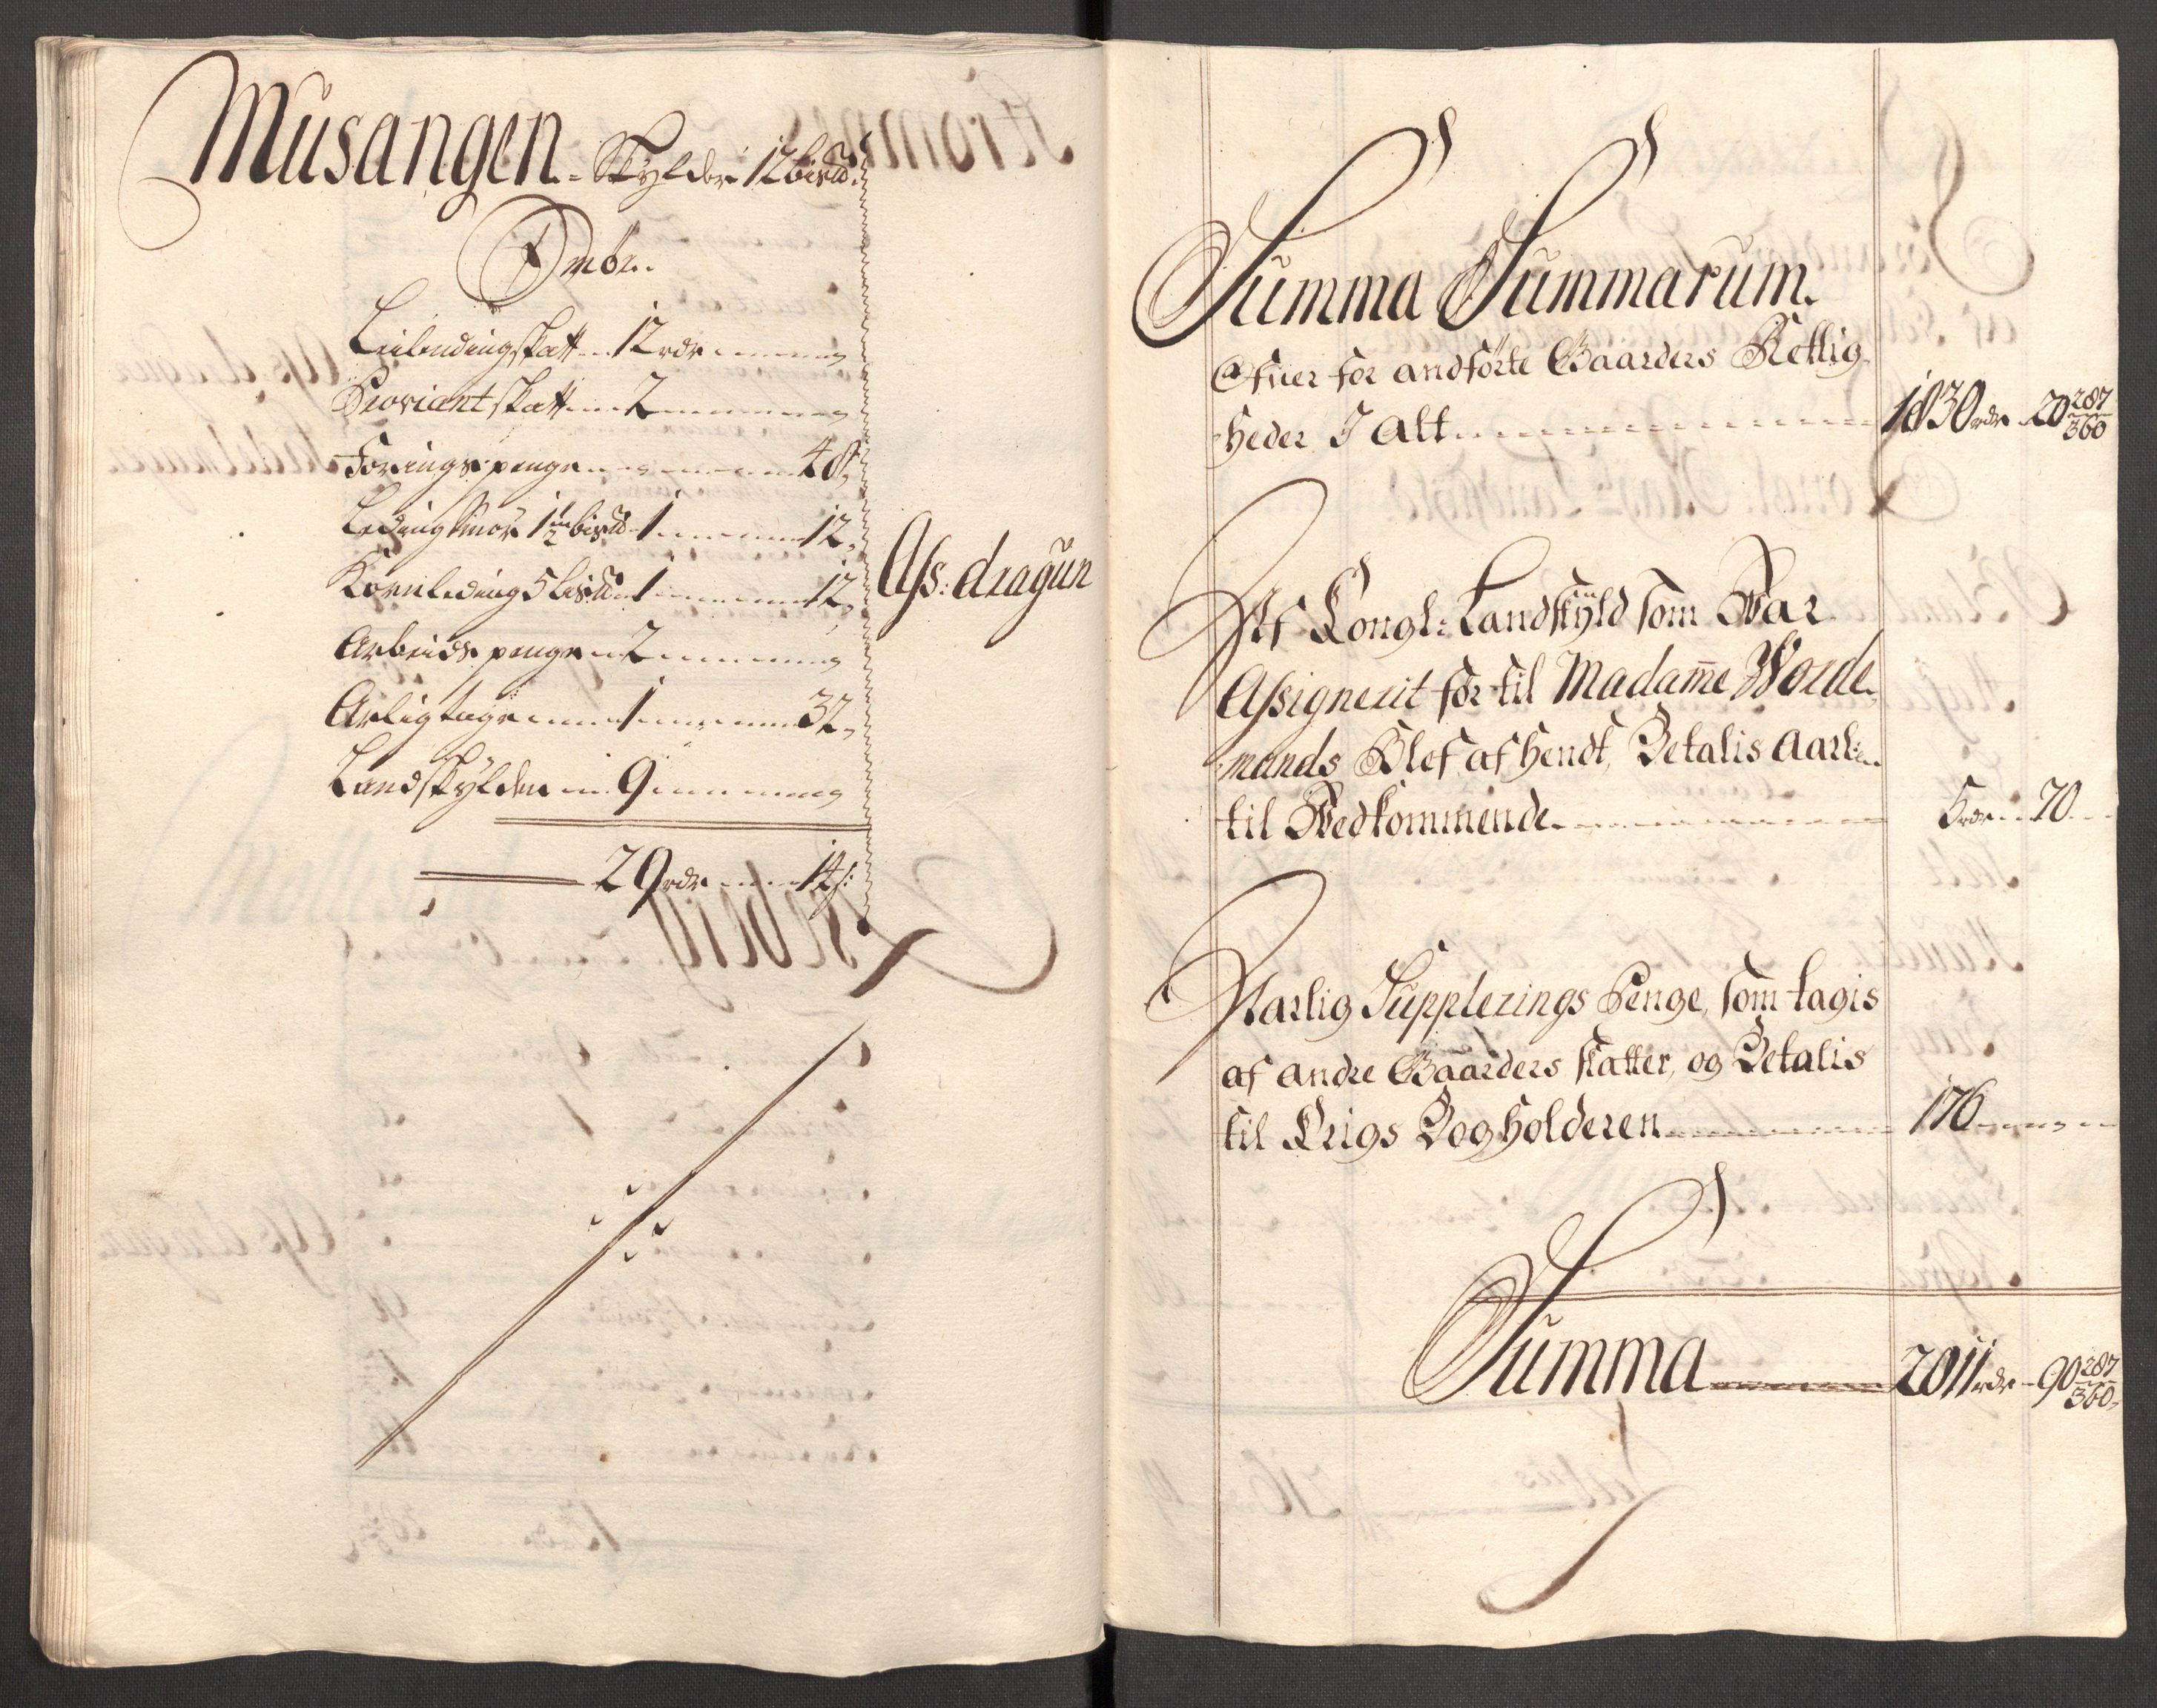 Musangen. Skylder 12 bismd:
Leilendingskatt 12 rdr
Proviantskatt 2
Foringspenge 48
Ledingsmör 1 1/2 bismd 1 12
Kornleding 5 bismd 1 12
Arbeidspenge 2
Arligtage 1 32
Landskylden 9
29 rdr 14 s:
Ass: dragun
Summa Summarum.
Ofuer for andförte Gaarders Rettig
heder J alt 1830 rdr 20 287/360
Af Kongl: Landskÿld som Var
Assignerit för til Madame Worde
mands Blef af hendt, Betalis aarl:
til Vedkommende 5 rdr 70
Aarlig Supplerings Penge, som tagis
af andre Gaarders skatter, og Betalis
til Krigs Bogholderen 176
Summa 2011 rdr 90 287/360